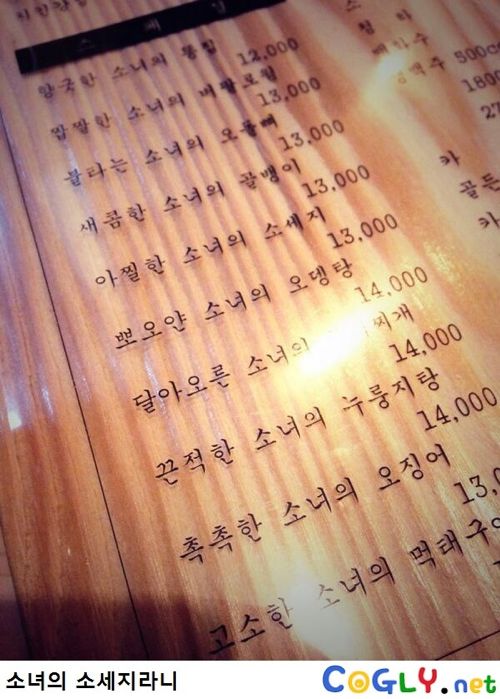 소녀의 똥집 12,000
짭짤한 소녀의 버팔로윙 13,000
불타는 소녀의 오돌뼈 13,000
새콤한 소녀의 골뱅이 13,000
아찔한 소녀의 소세지 13,000
뽀오얀 소녀의 오뎅탕 14,000
달아오른 소녀의 찌개 14,000
끈적한 소녀의 누룽지탕 14,000
촉촉한 소녀의 오징어 13,0
고소한 소녀의 먹태구
소
청하
생맥주 500c
카
골든
카
소녀의 소세지라니
COGLY.net